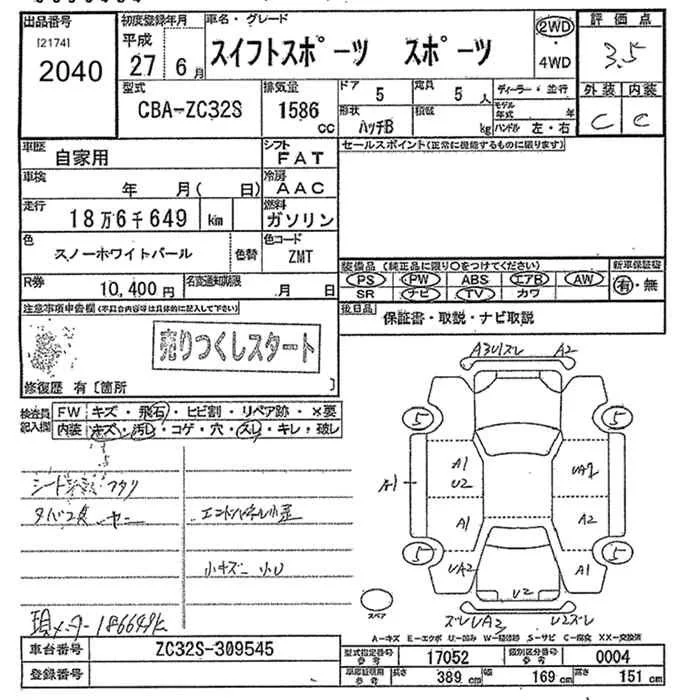 出品番号
[2174]
2040
初度登録年月
平成
27 6月
車名・グレード
スイフトスポーツ スポーツ
2WD
・
4WD
評価点
3.5
外装 内装
C C
型式
CBA-ZC32S
排気量
1586
cc
ドア
5
定員
5人
形状
ハッチB
積載
kg
ディーラー・並行
モデル年式 年
ハンドル 左・右
車歴
自家用
シフト
FAT
セールスポイント(正常に機能するものに限ります)
車検
年 月( 日)
冷房
AAC
走行
18万6千649 km
燃料
ガソリン
色
スノーホワイトパール
色替
色コード
ZMT
装備品 (純正品に限り○をつけてください)
PS PW ABS エアB AW
SR ナビ TV カワ
新車保証書
有・無
R券
10,400円
名変通知期限
月 日
注意事項申告欄(不具合内容等は具体的に記入して下さい)
売りつくしスタート
後日品
保証書・取説・ナビ取説
修復歴 有〔箇所 〕
検査員記入欄
FW キズ・飛石・ヒビ割・リペア跡・×要
内装 キズ・汚レ・コゲ・穴・スレ・キレ・破レ
A3Uスレ A2
5 5
A1
A1
U2
UA2
A1 A2
5 5
UA2 A1
U2
スペア
タバコ臭 ヤニ
小キズ 小U
現メーター186649k
A-キズ E-エクボ U-凹み W-補修跡 S-サビ C-腐食 XX-交換済
車台番号
ZC32S-309545
登録番号
型式指定番号
参考
17052
類別区分番号
参考
0004
車庫証明用
参考
長さ
389 cm
幅
169 cm
高さ
151 cm